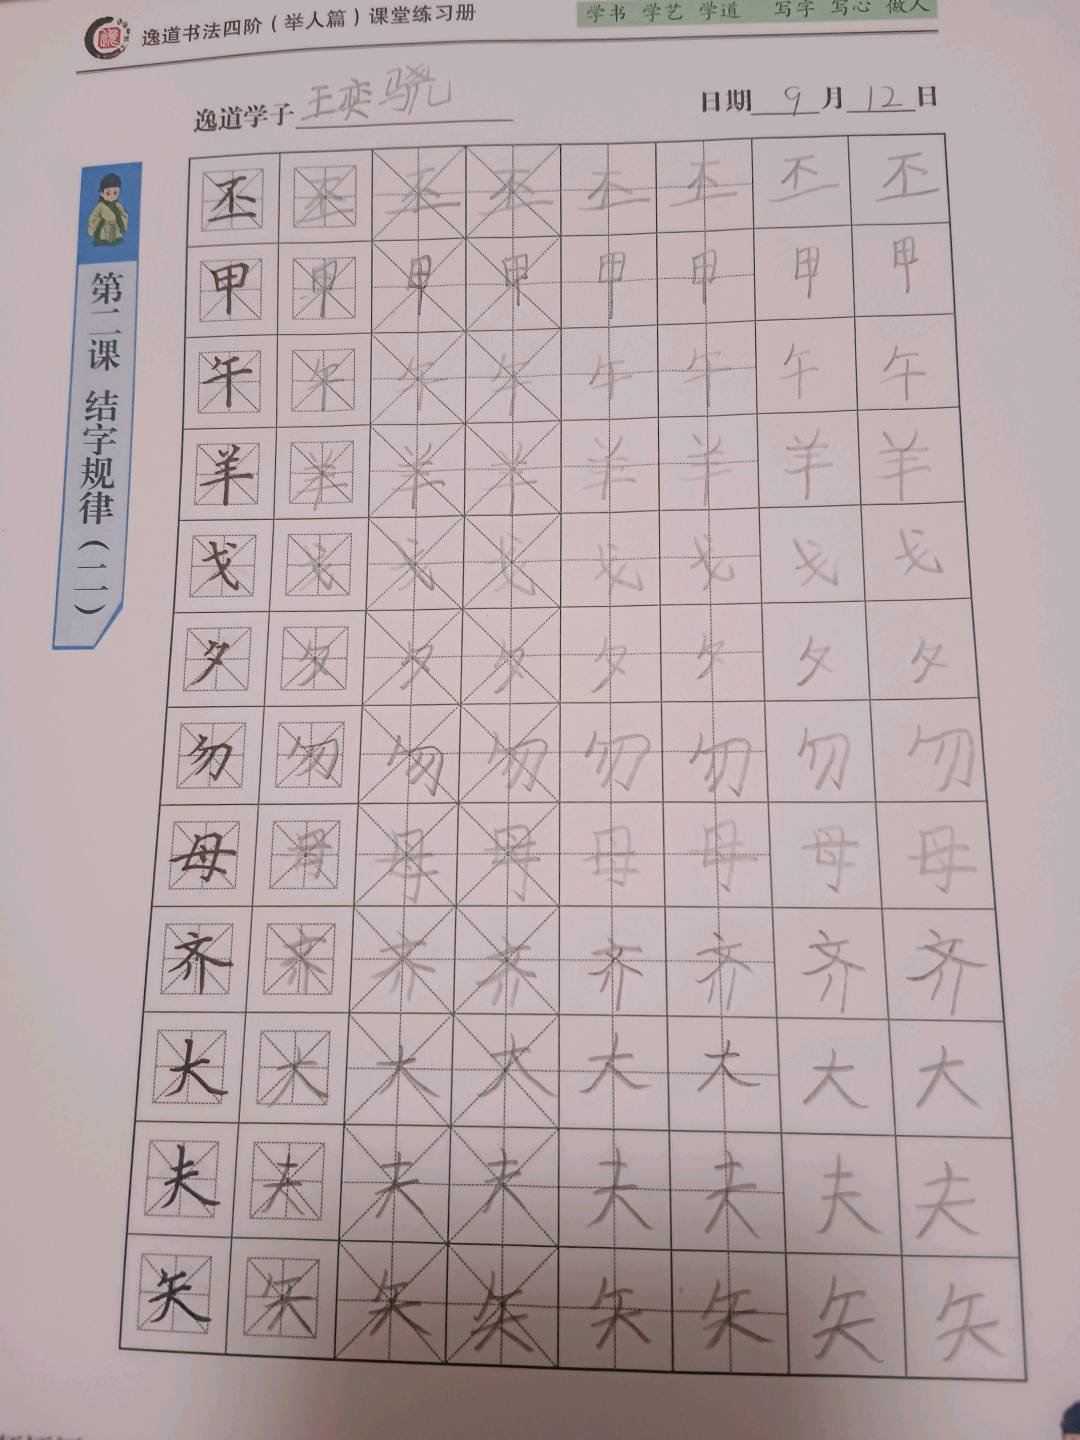 逸道书法四阶（举人篇）课堂练习册
学书 学艺 学道 写字 写心 做人
逸道学子 王奕骁 日期 9 月 12 日
第二课 结字规律（二）
丕 丕 丕 丕 丕 丕 丕 丕
甲 甲 甲 甲 甲 甲 甲 甲
午 午 午 午 午 午 午 午
羊 羊 羊 羊 羊 羊 羊 羊
戈 戈 戈 戈 戈 戈 戈 戈
夕 夕 夕 夕 夕 夕 夕 夕
勿 勿 勿 勿 勿 勿 勿 勿
母 母 母 母 母 母 母 母
齐 齐 齐 齐 齐 齐 齐 齐
大 大 大 大 大 大 大 大
夫 夫 夫 夫 夫 夫 夫 夫
矢 矢 矢 矢 矢 矢 矢 矢